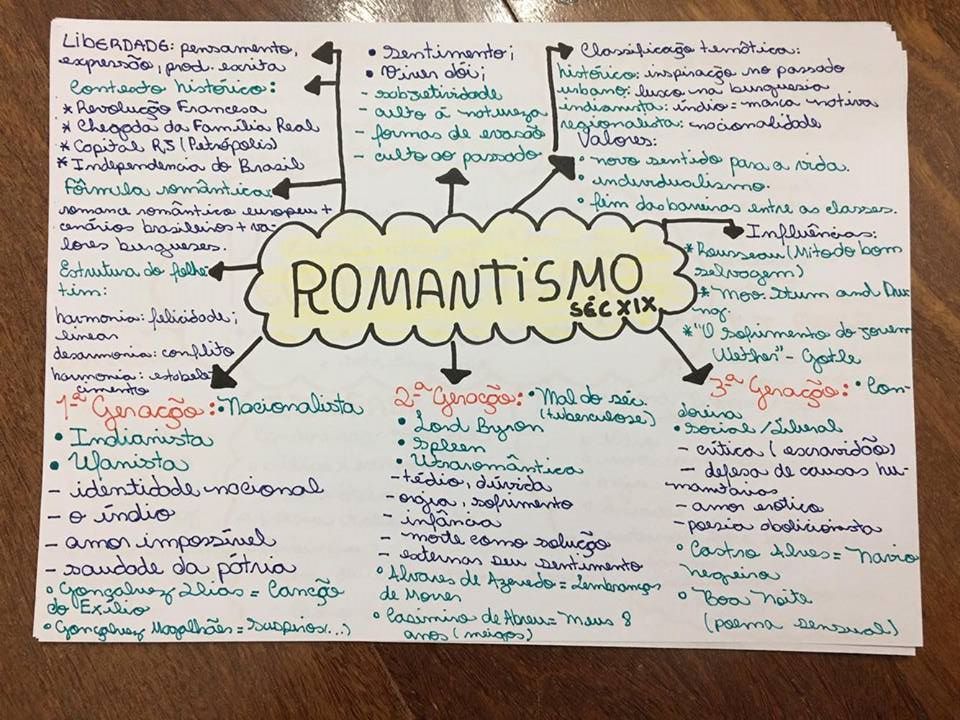 LIBERDADE: pensamento,
expressão, prod. escrita
Contexto histórico:
* Revolução Francesa
* Chegada da Família Real
* Capital RJ (Petrópolis)
* Independencia do Brasil
Fórmula romântica:
romance romântico europeu +
cenários brasileiros + va-
lores burgueses.
Estrutura do folhe-
tim:
harmonia: felicidade;
linear
desarmonia: conflito
harmonia: estabele-
cimento
• Sentimento;
• Viver dói;
- subjetividade
- culto á natureza
- formas de evasão
- culto ao passado
Classificação temática:
histórico: inspiração no passado
urbano: luxo na burguesia
indianista: índio = marca nativa
regionalista: nacionalidade
Valores:
• novo sentido para a vida.
• individualismo.
• fim das barreiras entre as classes.
Influências:
* Rousseau (Mito do bom
selvagem)
* Mov. Sturm and Dra
ng.
* "O Sofrimento do jovem
Wether" - Gotle
ROMANTISMO
SÉC XIX
1ª Geração: • Nacionalista
• Indianista
• Ufanista
- identidade nacional
- o índio
- amor impossível
- saudade da pátria
• Gonçalvez Dias = Canção
do Exílio
• Gonçalvez Magalhães = Suspiros(...)
2ª Geração: • Mal do séc.
(tuberculose)
• Lord Byron
• Spleen
• Utraromântica
- tédio, dúvida
- orgia, sofrimento
- infância
- morte como solução
- externas seu sentimento
• Alvares de Azevedo = Lembranças
de Morrer
• Casimiro de Abreu = Meus 8
anos (meigos)
3ª Geração: • Con-
doreira
• Social / Liberal
- crítica (escravidão)
- defesa de causas hu-
manitárias
- amor erótico
- poesia abolicionista
• Castro Alves = Navio
Negreiro
• Boa Noite
(poema sensual)